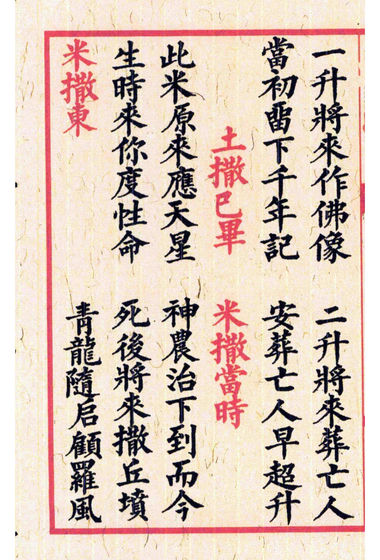 一升將來作佛像　二升將來葬亡人
當初畱下千年記　安葬亡人早超升
土撒巳畢　米撒當時
此米原來應天星　神農治下到而今
生時來你度性命　死後將來撒丘墳
米撒東　青龍隨后顧羅風